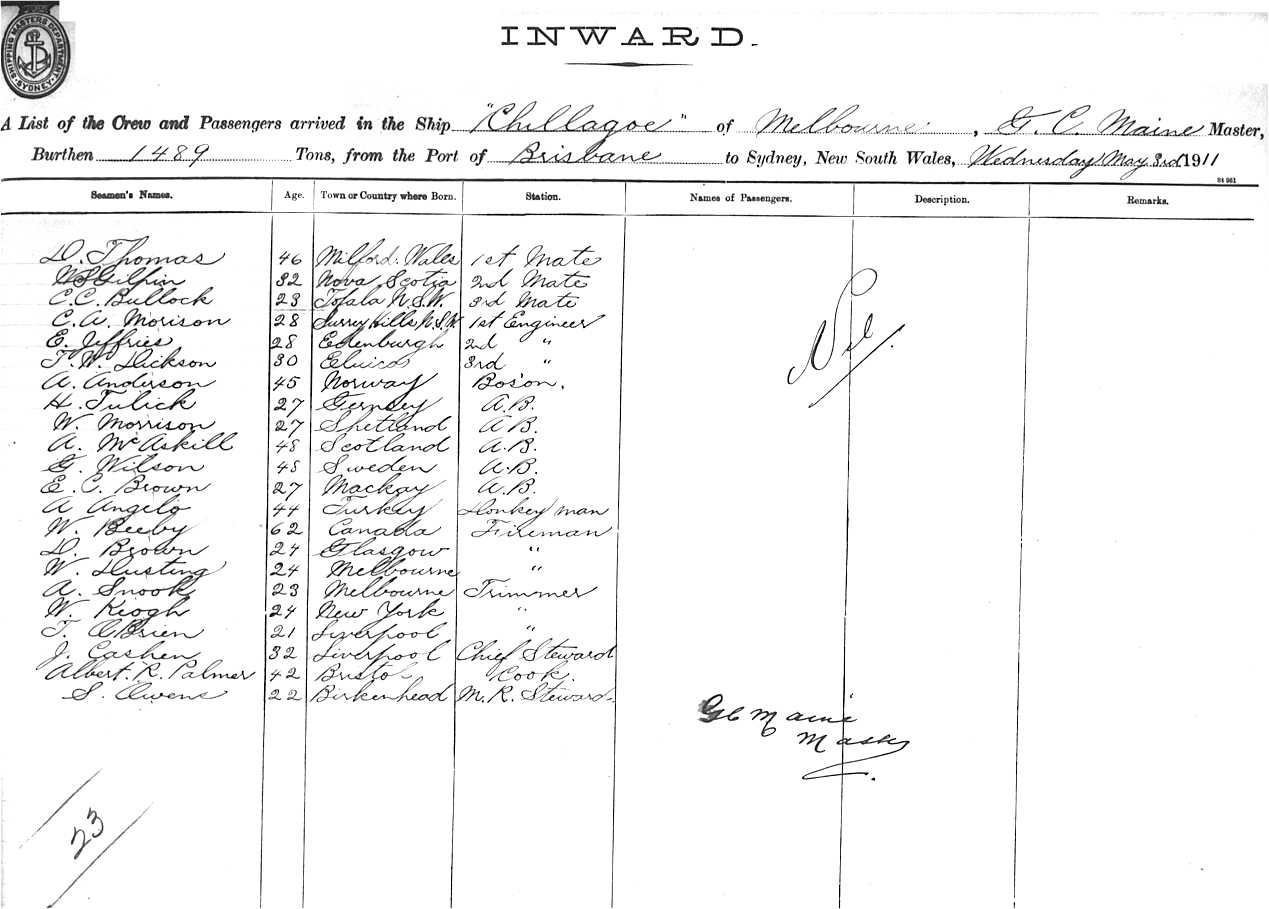 SHIPPING MASTERS DEPARTMENT
SYDNEY
INWARD.
A List of the Crew and Passengers arrived in the Ship "Chillagoe" of Melbourne, G. C. Maine Master,
Burthen 1489 Tons, from the Port of Brisbane to Sydney, New South Wales, Wednesday May 3rd 1911
84 961
Seamen's Names. Age. Town or Country where Born. Station. Names of Passengers. Description. Remarks.
D. Thomas 46 Milford. Wales 1st Mate
W S Gilpin 32 Nova Scotia 2nd Mate
C.C. Bullock 23 Tofala N.S.W. 3rd Mate
C. A. Morison 28 Surrey Hills N.S.W. 1st Engineer
E. Jeffries 28 Edenburgh 2nd "
T. W. Dickson 30 3rd "
A. Anderson 45 Norway Bos'on.
H. Tulick 27 Gernsey A.B.
W. Morrison 27 Shetland A.B.
A. McAskill 48 Scotland A.B.
G. Wilson 48 Sweden A.B.
E. C. Brown 27 Mackay A.B.
A Angelo 44 Turkey Donkey man
W. Beeby 62 Canada Fireman
D. Brown 24 Glasgow "
W. Dusting 24 Melbourne "
A. Snook 23 Melbourne Trimmer
W. Keogh 24 New York "
T. OBrien 21 Liverpool "
J. Cashen 32 Liverpool Chief Steward
Albert. R. Palmer 42 Bristol Cook.
S. Owens 22 Birkenhead M. R. Steward
Nil
G C Maine
Master
23